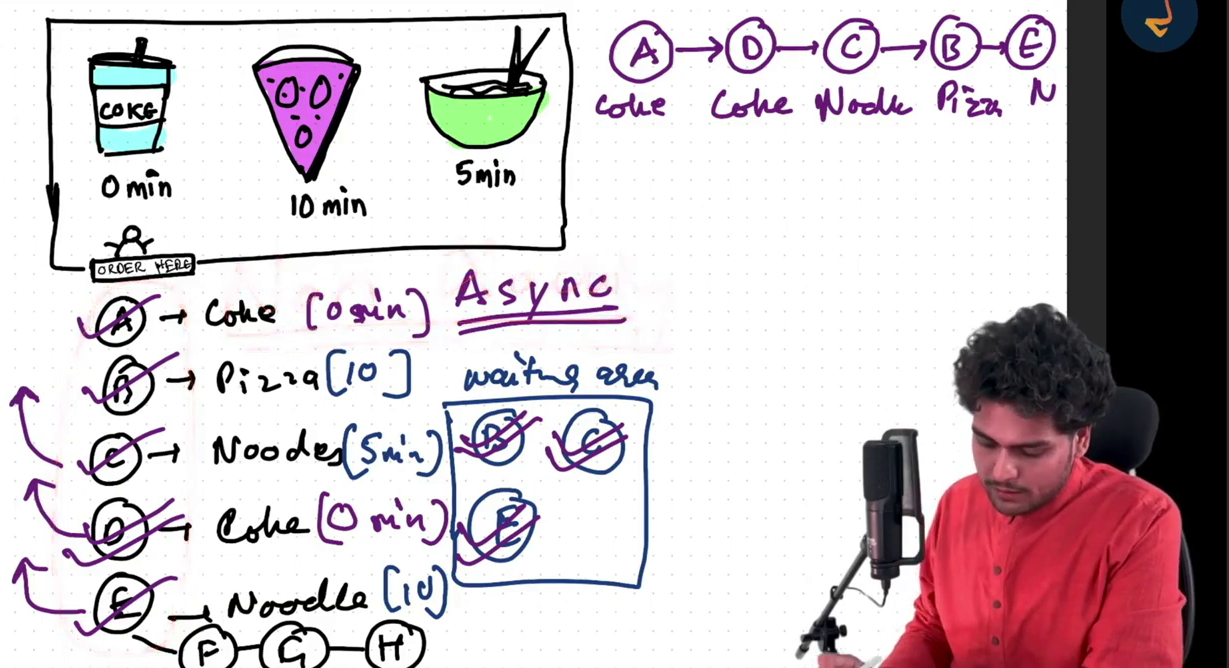 COKE
0 min
10 min
5min
ORDER HERE
A D C B E
Coke Coke Noodle Pizza N
Async
A → Coke [0 min]
B → Pizza [10]
C → Noodes (5min)
D → Coke (0 min)
E → Noodle [10]
F G H
waiting area
B C
E